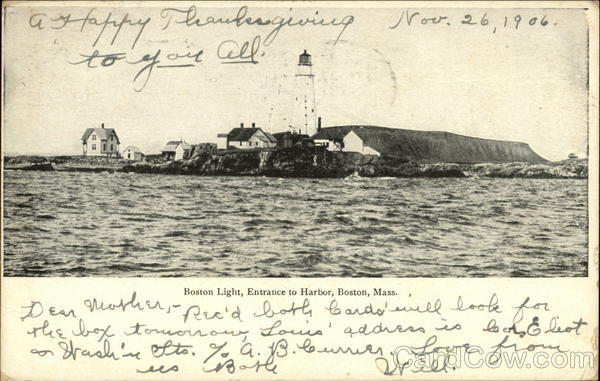 A Happy Thanksgiving Nov. 26, 1906.
to you All.
Boston Light, Entrance to Harbor, Boston, Mass.
Dear Mother,- Rec'd both Cards will look for
the box tomorrow, Louis' address is Cor Eliot
& Wash'n Sts. c/o A. B. Currier, Love from
us Both
CardCow.com